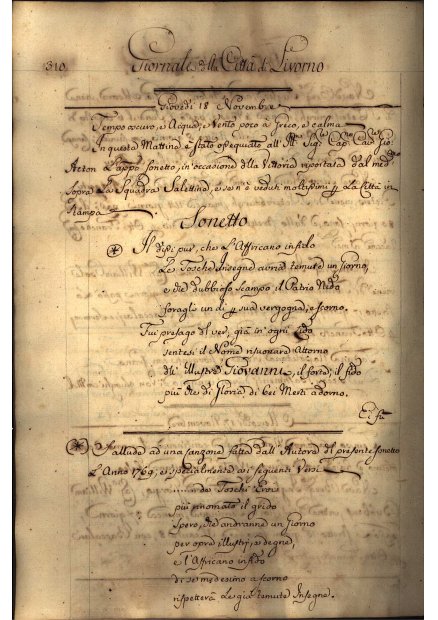 310
Giornale della Città di Livorno
Giovedì 18 Novembre
Tempo oscuro, e Acqua, e Vento poco a Greco, e calma
In questa Mattina è stato ossequiato all' Sigre Cap. Cav. Gio:
Acton l'appo sonetto, in occasione della Vittoria riportata dal med:
sopra la Squadra Salettina, e se n'è veduti moltissimi p la Città in
Stampa
Sonetto
Il dissi pur, che l'Affricano infido
Le Tosche Insegne avria temute un giorno,
e che dubbioso scampo il Patrio Nido
foragli un dì p sua vergogna, e scorno.
Fui presago del ver, già in ogni Lido
sentesi il Nome risuonare Attorno
dell' illustre Giovanni, il forte, il fido
più che di Gloria di bei Merti adorno.
E i fu
S'allude ad una Canzone fatta dall' Autore del presente Sonetto
L'Anno 1769, e specialmente ai seguenti Versi
Toschi Eroi
più rinomato il grido
Spero, che andranne un Giorno
per opre illustri, e degne,
e l'Affricano infido
di se medesimo a scorno
rispetterà le già temute Insegne.